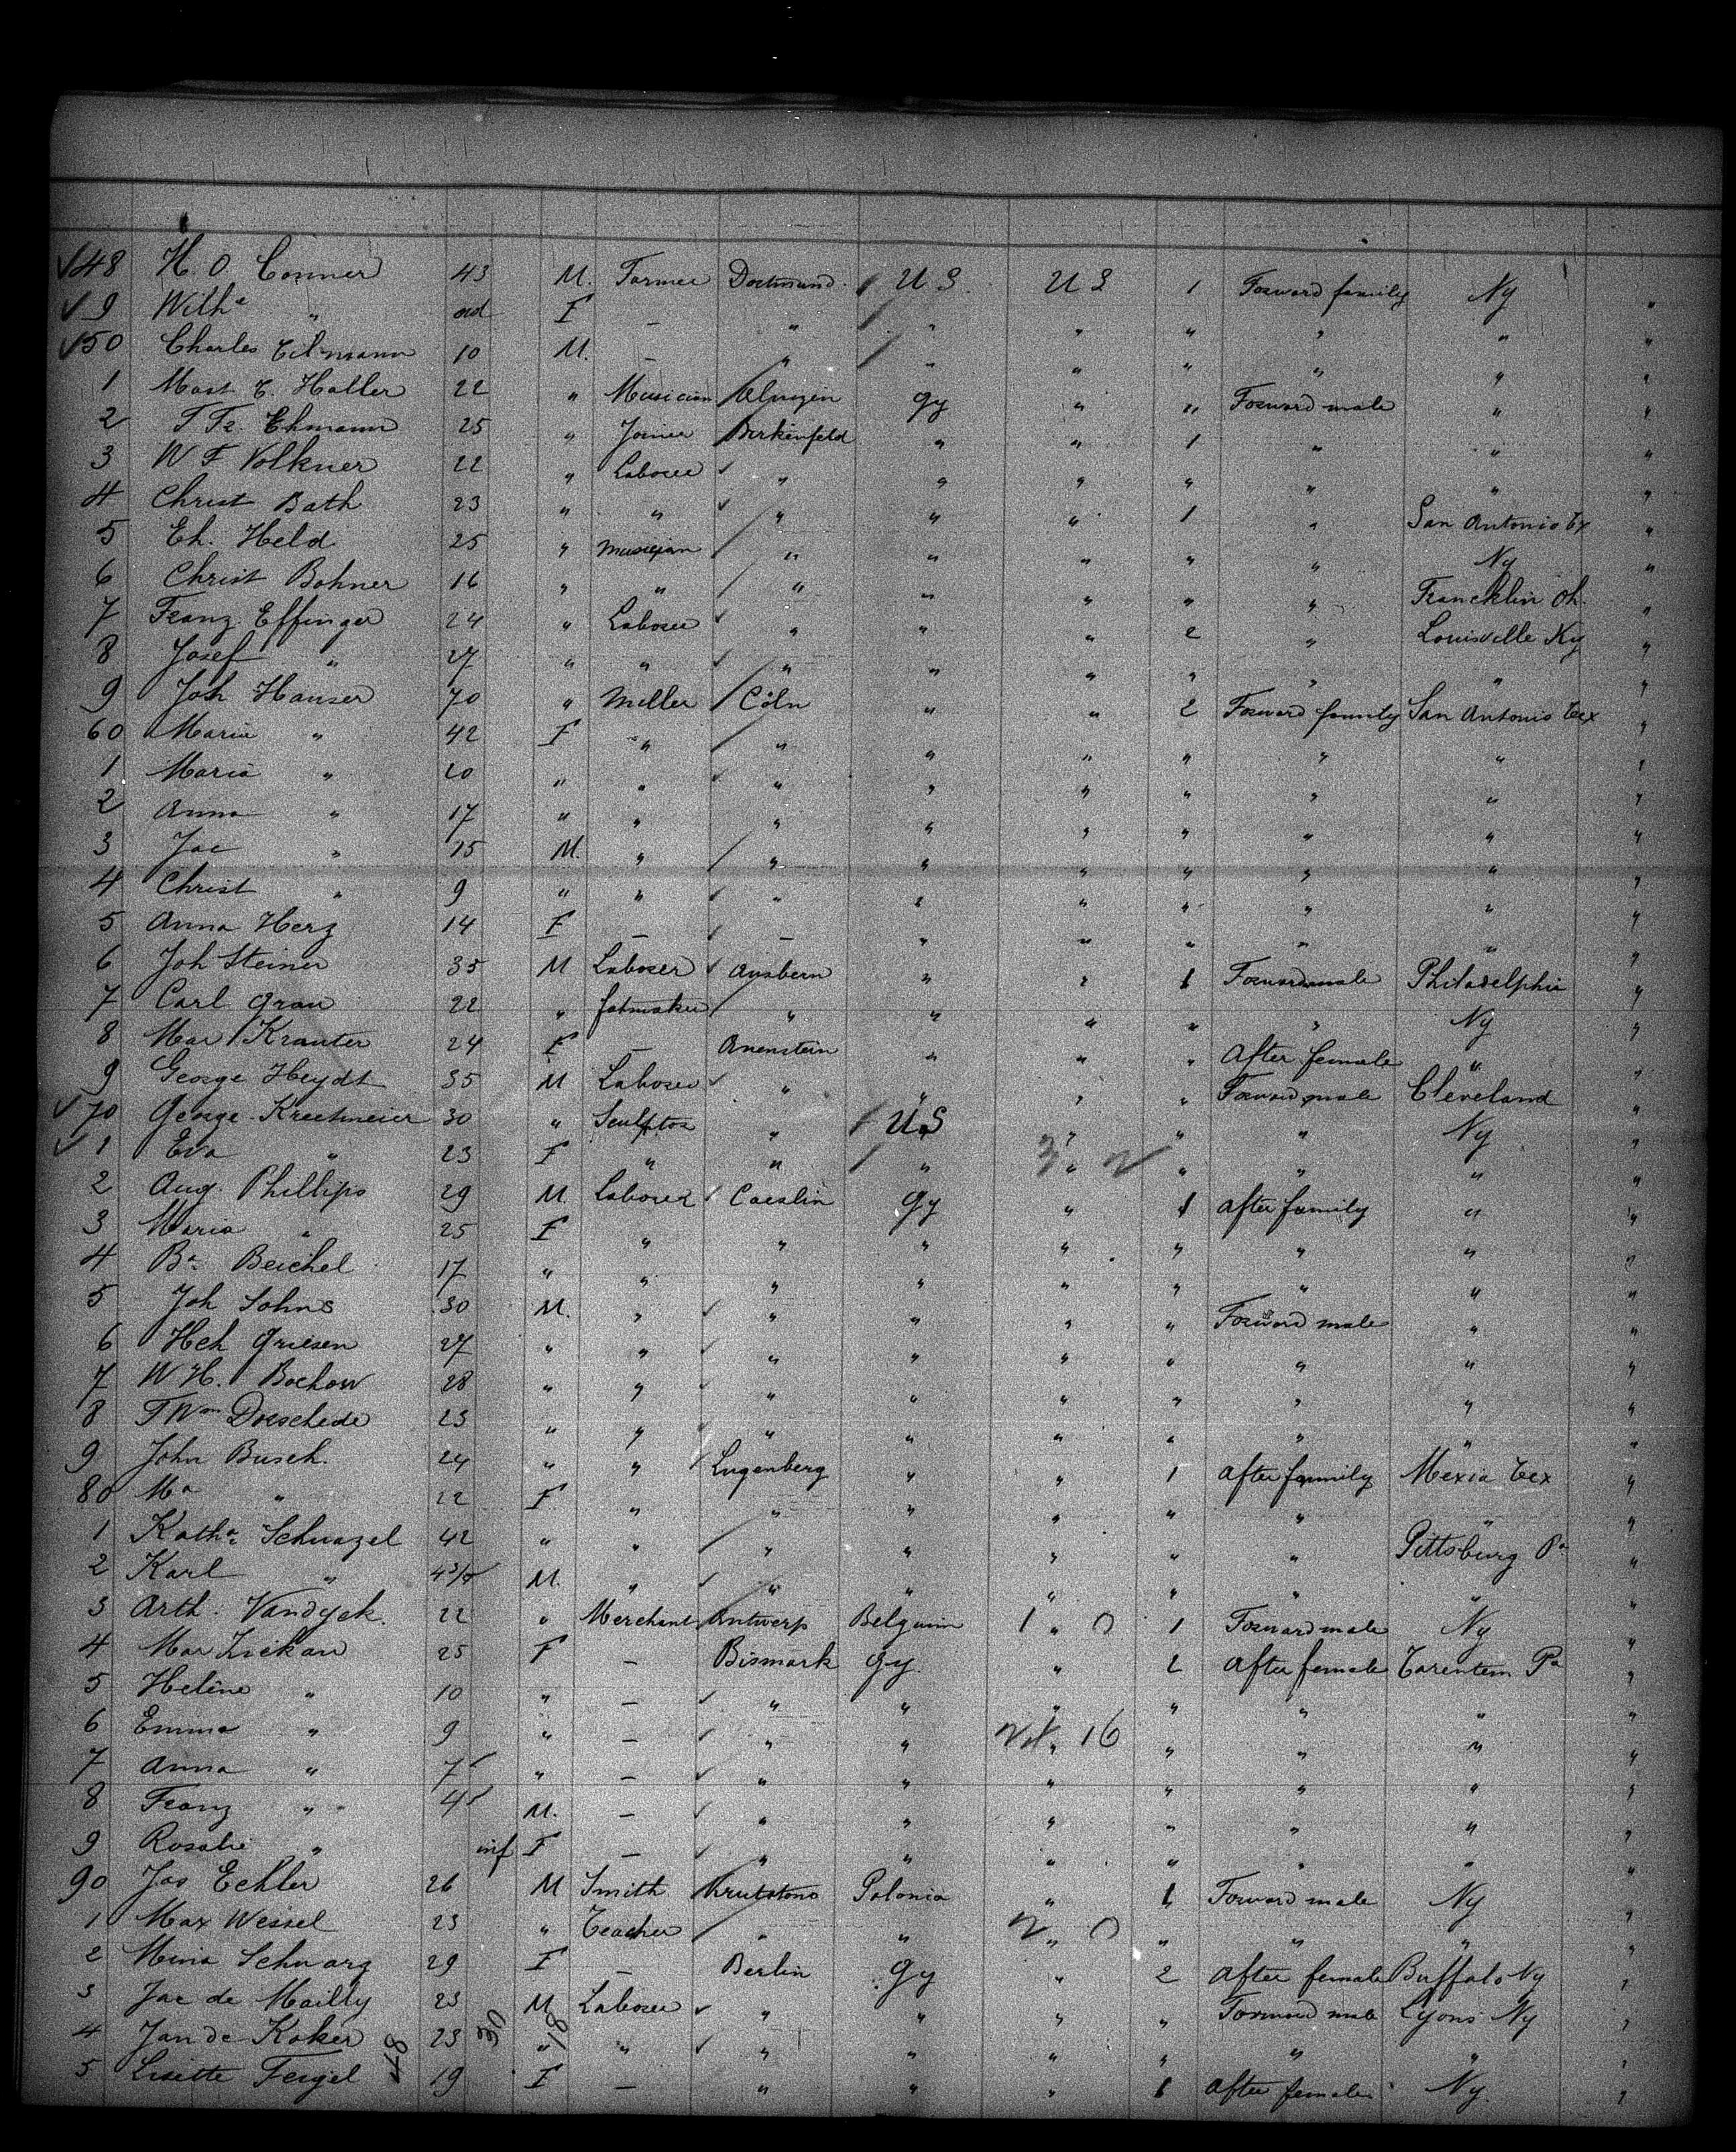 ✓48 H. O. Conner 43 M. Farmer Dortmund U S. U S 1 Forward family Ny "
✓9 Wilhª " ad F — " " " " " " "
✓50 Charles 10 M. — " " " " " " "
1 Mast E. Haller 22 " Musician gy " " Forward male " "
2 T Fr. Ehmann 25 " Joiner Birkenfeld " " 1 " " "
3 W F Volkner 22 " Laborer " " " " " " "
4 Christ Bath 23 " " " " " 1 " San Antonio Tx "
5 Eh. Held 25 " Musician " " " " " Ny "
6 Christ Bohner 16 " " " " " " " Francklin Oh. "
7 Franz Effinger 24 " Laborer " " " 2 " Louisville Ky "
8 Josef " 27 " " " " " " " " "
9 Joh Hauser 70 " Miller Cöln " " 2 Forward family San Antonio Tex "
60 Maria " 42 F " " " " " " " "
1 Maria " 20 " " " " " " " " "
2 Anna " 17 " " " " " " " " "
3 Jac " 15 M. " " " " " " " "
4 Christ " 9 " " " " " " " " "
5 Anna Herz 14 F — — " " " " " "
6 Joh Steiner 35 M Laborer " " 1 Forward male Philadelphia "
7 Carl Grau 22 " " " " " " Ny "
8 Mar Krauter 24 F — " " " After female " "
9 George Heydt 35 M Laborer " " " " Forward male Cleveland "
✓70 George Kretmeier 30 " Sculptor " U.S " " " Ny "
✓1 Eva " 23 F " " " 3 " 2 " " " "
2 Aug. Phillips 29 M. Laborer Caeslin gy " 1 After family " "
3 Maria " 25 F " " " " " " " "
4 Bª Beichel 17 " " " " " " " " "
5 Joh Sohns 30 M. " " " " " Forward male " "
6 Hch Griesen 27 " " " " " " " " "
7 W H. Bochow 28 " " " " " " " " "
8 T Wm Dorschede 23 " " " " " " " " "
9 John Busch. 24 " " Luxenberg " " 1 After family Mexia Tex "
80 Mª " 22 F " " " " " " " "
1 Kathª 42 " " " " " " " Pittsburg Pª "
2 Karl " M. " " " " " " " "
3 Arth. Vandyck. 22 " Merchant Antwerp Belguim 1 " 0 1 Forward male Ny "
4 Mar 25 F — Bismark gy. " 2 After female Tarentem Pª "
5 Helene " 10 " — " " " " " " "
6 Emma " 9 " — " " " 16 " " " "
7 Anna " 7 " — " " " " " " "
8 Franz " 4 M. — " " " " " " "
9 Rosalie " inf F — " " " " " " "
90 Jos Eckler 26 M Smith Polonia " 1 Forward male Ny "
1 Max Wessel 23 " Teacher " " 2 " 0 " " " "
2 Mina Schwarz 29 F — Berlin gy " 2 After female Buffalo Ny "
3 Jac de Mailly 23 M Laborer " " " " Forward male Lyons Ny "
4 Jan de Koker 23 " " " " " " " " "
5 Lisette Feigel 19 F — " " " 1 After female Ny. "
48 30 18